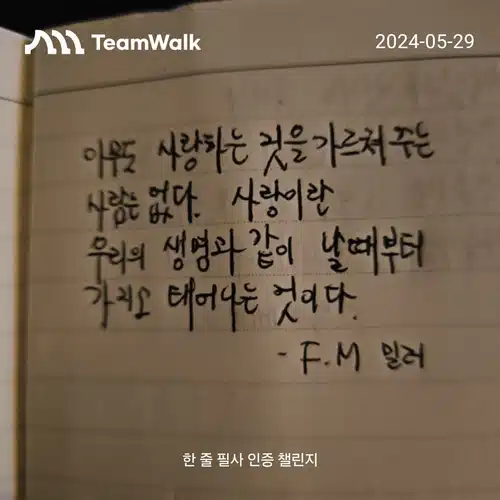 TeamWalk
2024-05-29
아무도 사랑하는 것을 가르쳐 주는
사람은 없다. 사랑이란
우리의 생명과 같이 날때부터
가지고 태어나는 것이다.
- F.M 밀러
한 줄 필사 인증 챌린지